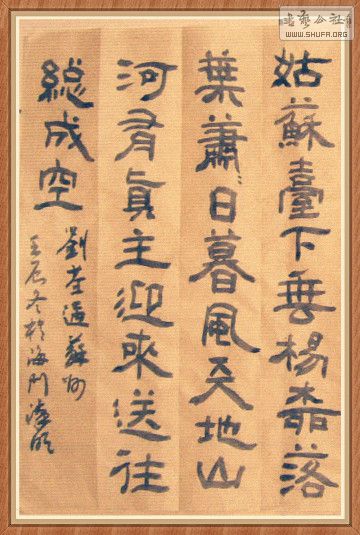 姑蘇臺下垂楊落
葉蕭〻日暮風天地山
河有真主迎來送往
總成空
劉基過蘇州
壬辰冬於海門
書藝公社
WWW.SHUFA.ORG